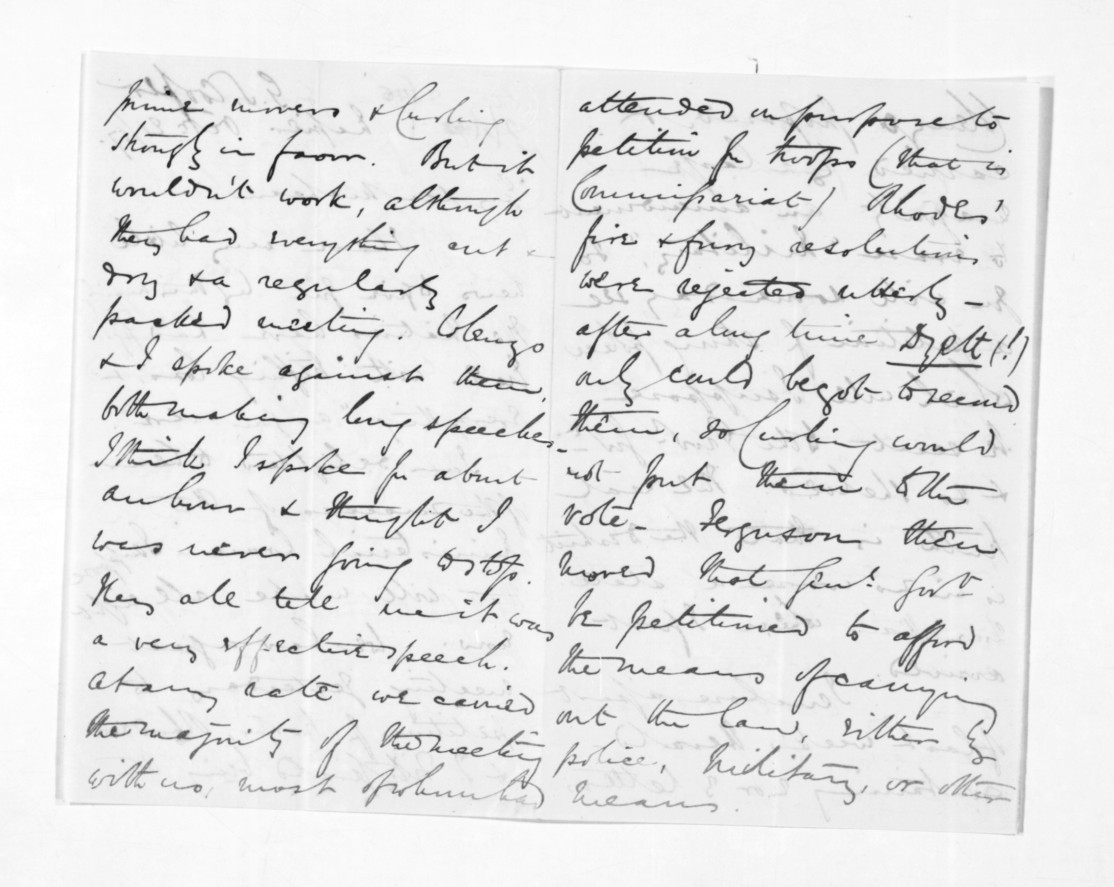 prime movers & Curling
strongly in favor. But it
wouldn't work, although
they had everything cut &
dry & a regularly
packed meeting. Colenzo
& I spoke against them,
both making long speeches.
I think I spoke for about
an hour & thought I
was never going to stop.
They all tell me it was
a very effective speech.
At any rate we carried
the majority of the meeting
with us, most of whom had
attended on purpose to
petition for troops (that is
Commissariat) Rhodes'
fire & fury resolutions
were rejected utterly -
after a long time Dyett (!)
only could be got to second
them, so Curling would
not put them to the
vote. Ferguson then
moved that Genl. Govt
be petitioned to afford
the means of carrying
out the law, either by
police, military, or other
means.